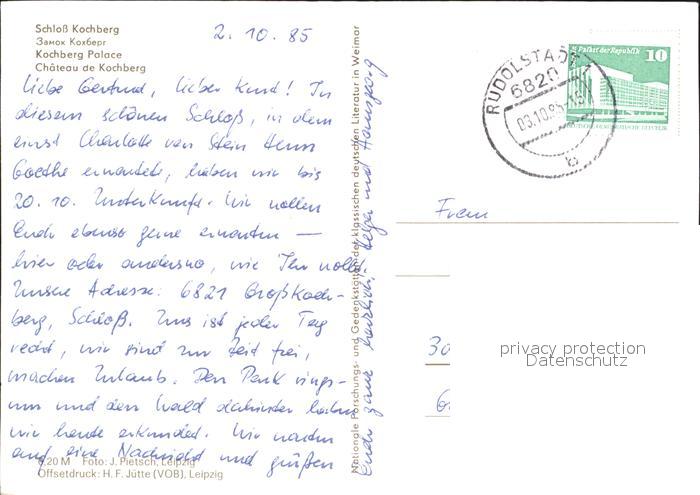 Schloß Kochberg
Замок Кохберг
Kochberg Palace
Château de Kochberg
2. 10. 85
Liebe Gertrud, lieber Kurt! In
diesem schönen Schloß, in dem
einst Charlotte von Stein Herrn
Goethe erwartete, haben wir bis
20. 10. Unterkunft. Wir wollen
Euch ebenso gerne erwarten —
hier oder anderswo, wie Ihr wollt.
Unsere Adresse: 6821 Großkoch-
berg, Schloß. Uns ist jeder Tag
recht, wir sind zur Zeit frei,
machen Urlaub. Den Park rings-
um und den Wald dahinter haben
wir heute erkundet. Wir warten
auf eine Nachricht und grüßen
Euch ganz herzlich. und Hansgeorg
0,20 M Foto: J. Pietsch, Leipzig
Offsetdruck: H. F. Jütte (VOB), Leipzig
Nationale Forschungs- und Gedenkstätten der klassischen deutschen Literatur in Weimar
RUDOLSTADT 1
6820
03.10.85-15
b
Palast der Republik 10
DEUTSCHE DEMOKRATISCHE REPUBLIK
Frau
30
privacy protection
Datenschutz
6